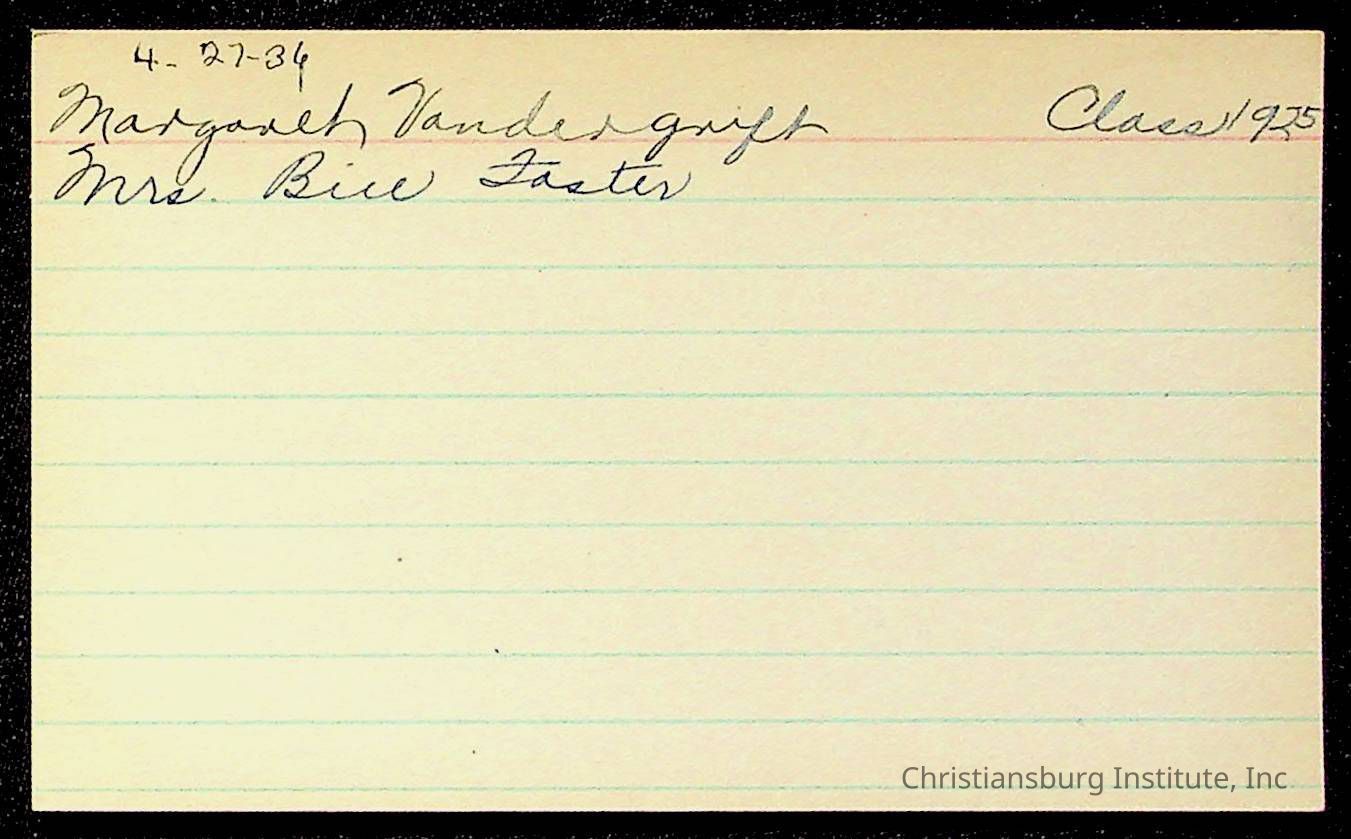 4- 27-36
Margaret Vandergrift Class 1925
Mrs. Bill Foster
Christiansburg Institute, Inc